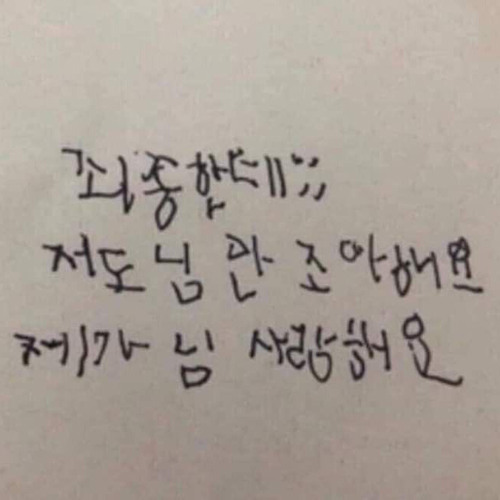 죄종한데;;
저도 님 만 조아해요
제가 님 사랑해요